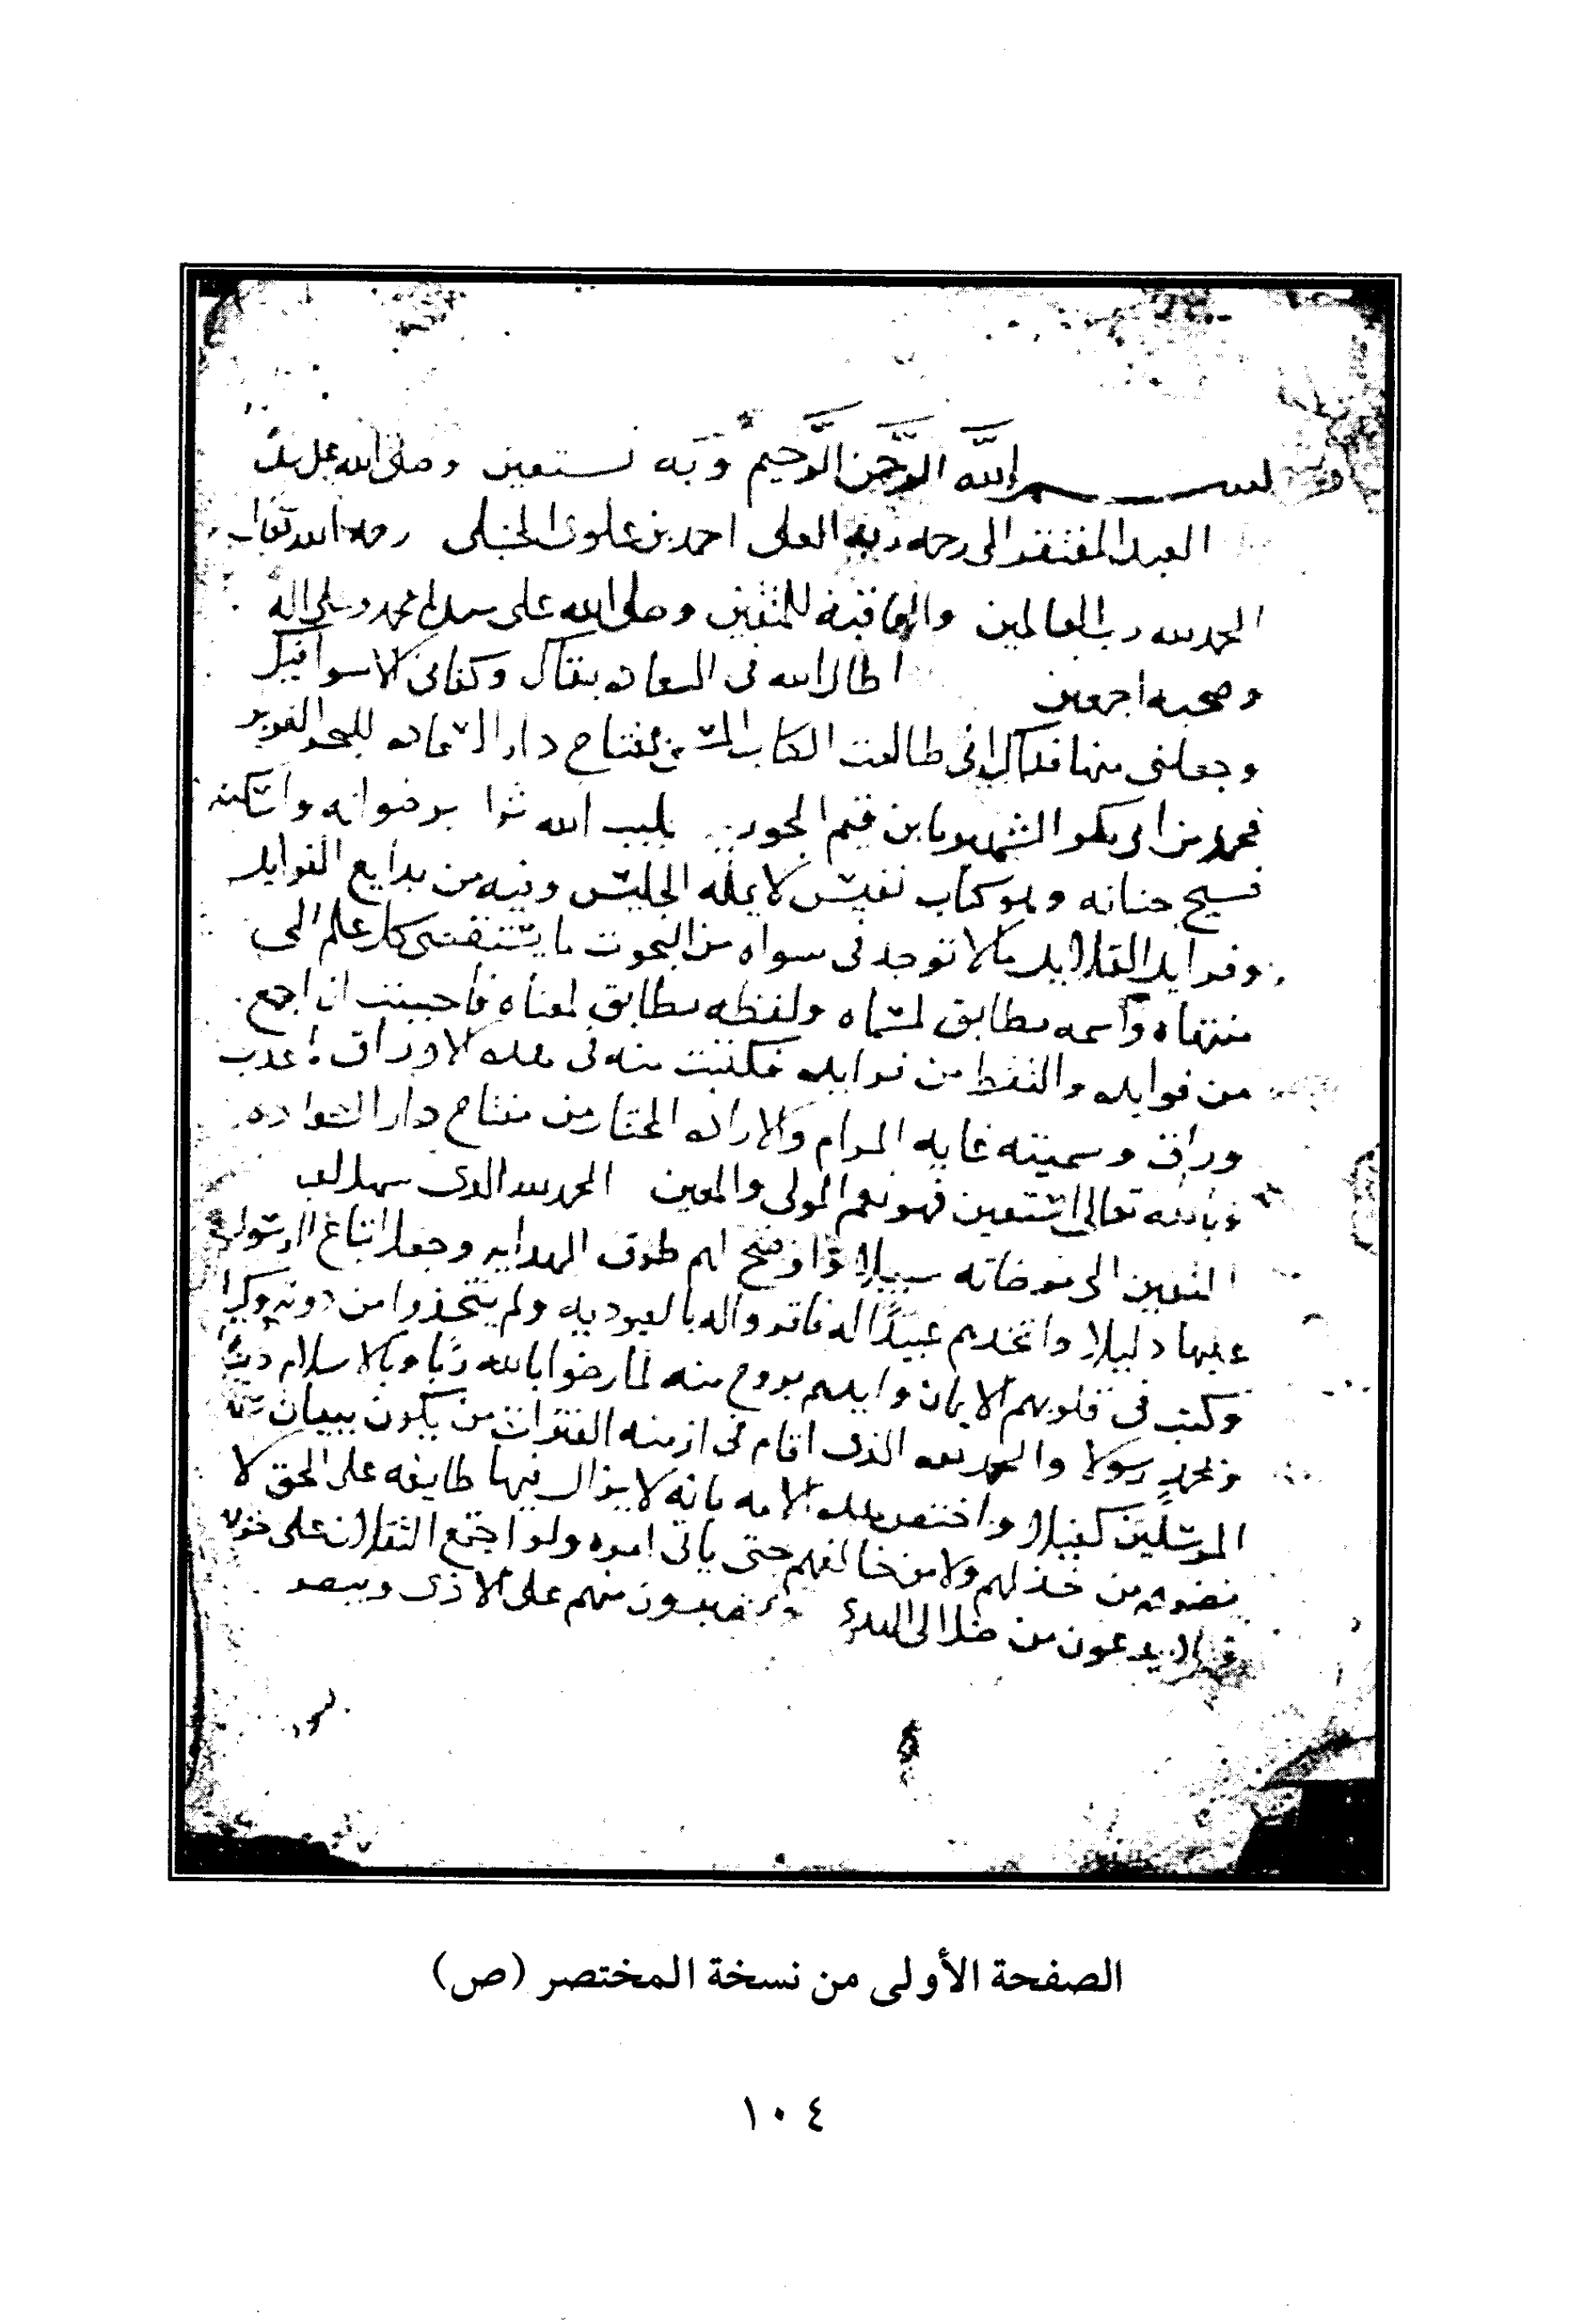 بسم الله الرحمن الرحيم وبه نستعين وصلى الله على
العبد المفتقر الى رحمه ربه العلى احمد بن علوى الحنبلى رحمه الله تعالى
الحمد لله رب العالمين والعاقبة للمتقين وصلى الله على سيدنا محمد وعلى اله
وصحبه اجمعين اطال الله فى السعاده بقاك وكفانى الاسوا فيك
وجعلنى منها فداك انى طالعت الكتاب المسمى بمفتاح دار السعاده للبحر الغزير
محمد بن ابى بكر الشهير بابن قيم الجوزيه الله ثراه برضوانه واسكنه
فسيح جنانه وهو كتاب نفيس لا يمله الجليس وفيه من بدايع الفوايد
وفرايد القلايد ما لا توجد فى سواه من البحوث ما يستقصى كل علم الى
منتهاه واسمه مطابق لمسماه ولفظه مطابق لمعناه فاحببت ان اجمع
من فوايده والتقط من فرايده فكتبت منه فى هذه الاوراق اعذب
وراق وسميته غايه المرام والاراده المختار من مفتاح دار السعاده
وبالله تعالى استعين فهو نعم المولى والمعين الحمد لله الذى سهل لعباده
المتقين الى مرضاته سبيلا واوضح لهم طرق الهدايه وجعل اتباع الرسول
عليها دليلا واتخذهم عبيدا له فاقروا له بالعبوديه ولم يتخذوا من دونه وكيلا
وكتب فى قلوبهم الايمان وايدهم بروح منه لما رضوا بالله ربا وبالاسلام دينا
وبمحمد رسولا والحمد لله الذى اقام فى ازمنه الفترات من يكون ببيان سنة
المرسلين كفيلا واختص هذه الامه بانه لا يزال فيها طايفه على الحق لا
يضرهم من خذلهم ولا من خالفهم حتى ياتى امره ولو اجتمع الثقلان على حربهم
قبيلا يدعون من ضل الى الهدى ويصبرون منهم على الاذى ويبصرون
الصفحة الأولى من نسخة المختصر (ص)
١٠٤